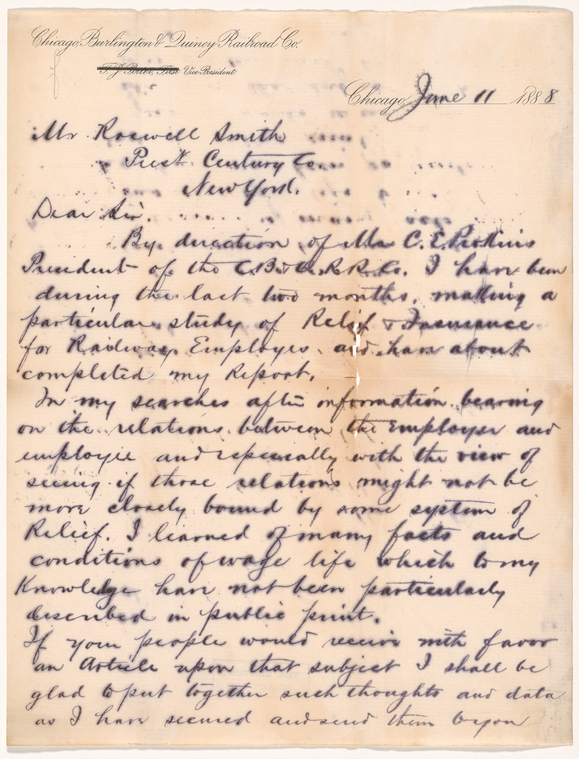 Chicago, Burlington & Quincy Railroad Co.
Vice-President
Chicago, June 11 1888
Mr Roswell Smith
Prest. Century Co.
New York.
Dear Sir.
By direction of Mr C. E. Perkins
President of the C. B. & Q. R. R. Co. I have been
during the last two months, making a
particular study of Relief & Insurance
for Railway Employes, and have about
completed my Report.
In my searches after information bearing
on the relations between the Employer and
employee and especially with the view of
seeing if those relations might not be
more closely bound by some system of
Relief. I learned of many facts and
conditions of wage life which to my
Knowledge have not been particularly
described in public print.
If your people would receive with favor
an Article upon that subject I shall be
glad to put together such thoughts and data
as I have secured and send them to you